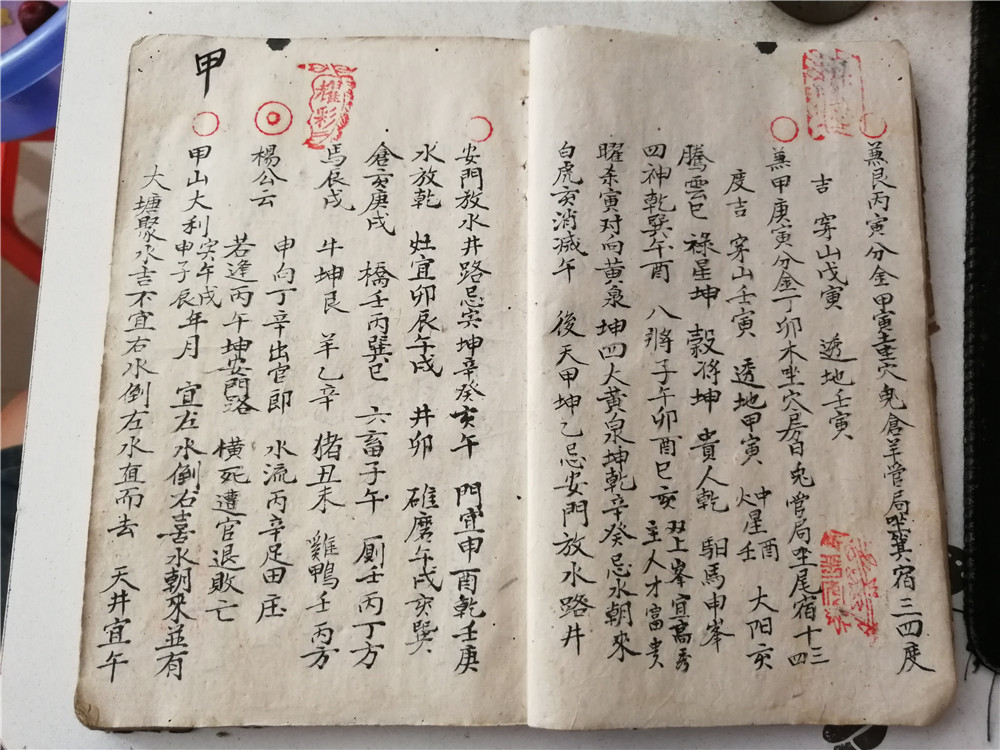 兼艮丙寅分金甲寅壬穴鬼倉羊管局坐箕宿三四度
吉 穿山戊寅 透地壬寅
兼甲庚寅分金丁卯木坐穴房日兎管局坐尾宿十三四
度吉 穿山壬寅 透地甲寅 星酉壬 大阳亥
騰雲巳 祿星坤 穀将坤 貴人乾 馹馬申峯
四神乾巽午酉 八將子午卯酉巳亥 双上峯宜高秀主人才富貴
曜杀寅对向黄泉坤四大黄泉坤乾辛癸忌水朝來
白虎亥消滅午 後天甲坤乙忌安門放水路井
安門放水井路忌寅坤辛癸亥午 門宜申酉乾壬庚
水放乾 灶宜卯辰午戌 井卯 碓磨午戌亥巽
倉亥庚戌 橋壬丙巽巳 六畜子午 厠壬丙丁方
馬辰戌 牛坤艮 羊乙辛 猪丑未 雞鴨壬丙方
楊公云 申向丁辛出官郎 水流丙辛足田庄
若逢丙午坤安門路 横死遭官退敗亡
甲山大利寅午戌申子辰年月 宜左水倒右喜水朝來並有
大塘聚水吉不宜右水倒左水直而去 天井宜午
甲
耀彩